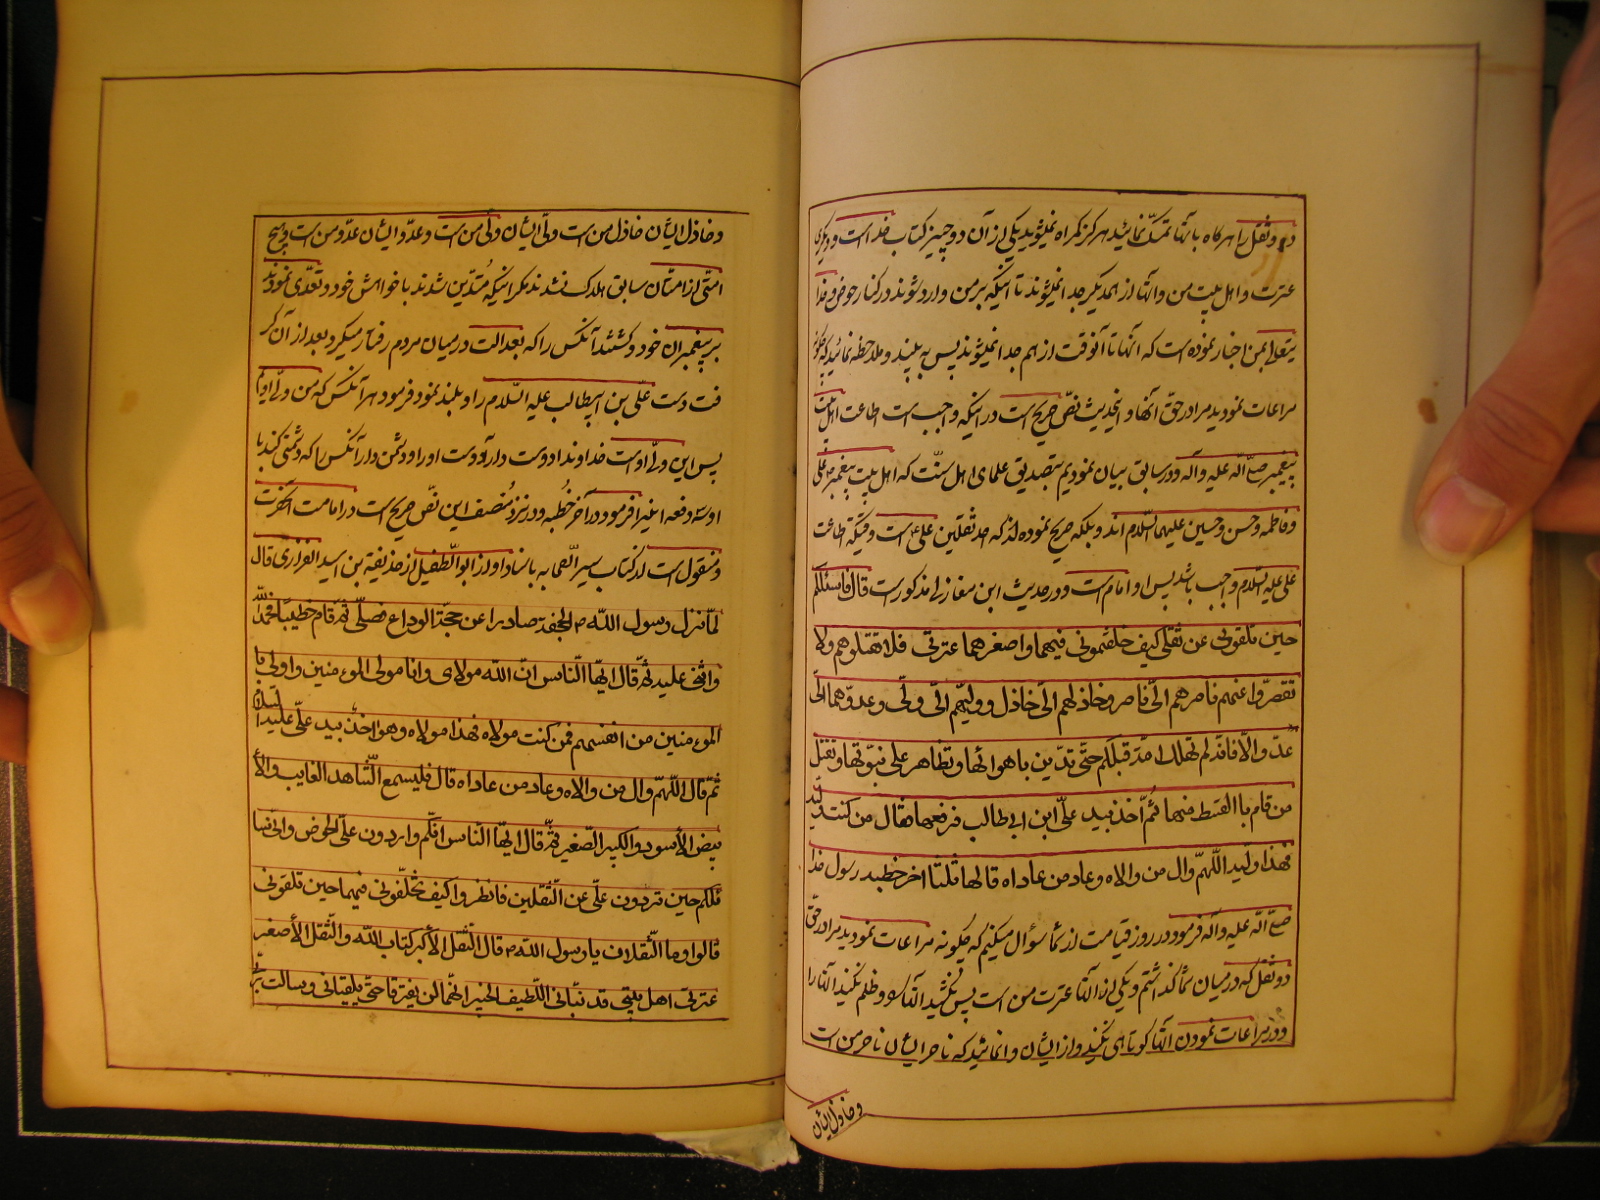 دو ثقل را هرگاه بآنها تمسک نمائید هرگز گمراه نمیشوید یکی از آن دو چیز کتاب خداست و دیگری
عترت و اهل بیت من و آنها از همدیگر جدا نمیشوند تا اینکه بر من وارد شوند در کنار حوض و خدا
بمن اخبار نموده است که آنها تا آنوقت از هم جدا نمیشوند پس به بینید و ملاحظه نمائید که چکونه
مراعات نمودید مرا در حق آنها و اینحدیث نص صریح است در اینکه واجب است طاعت اهل بیت
پیغمبر صلی الله علیه و آله و در سابق بیان نمودیم بتصدیق علمای اهل سنت که اهل بیت پیغمبر علی
و فاطمه و حسن و حسین علیهم السلام اند و بلکه صریح نموده اند که احد ثقلین علی است وقتیکه طاعت
علی علیه السلام واجب باشد پس او امام است و در حدیث ابن مغازلی مذکور است قال فاسئلکم
حین تلقونی عن ثقلی کیف خلفتمونی فیهما و اصغرهما عترتی فلا تقتلوهم ولا
تقصروا عنهم ناصرهم الیّ ناصر و خاذلهم الیّ خاذل و ولیهم الیّ ولیّ و عدوهما الیّ
عدو الا فانه لم تهلک امة قبلکم حتی تدین باهوائها و تظاهر علی نبوتها و تقتل
من قام باالقسط منها ثم اخذ بید علی ابن ابی طالب فرفعها فقال من کنت ولیه
فهذا ولیه اللهم وال من والاه و عاد من عاداه قالها ثلثا اخر خطبه رسول خدا
صلی الله علیه و آله فرمود در روز قیامت از شما سؤال میکنم که چکونه مراعات نمودید مرا در حق
دو ثقل که در میان شما گذاشتم و یکی از آنها عترت من است پس نکشید آنها را و ظلم نکنید آنها را
و در مراعات نمودن آنها کوتاهی نکنید و از ایشان وانمائید که ناصر ایشان ناصر من است
و خاذل ایشان
و خاذل ایشان خاذل من است ولیّ ایشان ولیّ من است و عدو ایشان عدو من است و هیچ
امتی از امتان سابق هلاک نشدند مکر اینکه متدین شدند با خواهش خود و تعدی نمودند
بر پیغمبران خود و کشتند آنکس را که بعدالت در میان مردم رفتار میکرد بعد از آن
دست علی بن ابیطالب علیه السلام را و بلند نمود فرمود هر آنکس که من ولیّ اویم
پس این ولیّ اوست خداوندا دوست دار دوست او را و دشمن دار آنکس را که دشمنی کند با
او سه دفعه اینرا فرمود در آخر خطبه و در نزد منصف این نص صریح است در امامت آنحضرت
و منقول است از کتاب سیر الصحابه باسناد او از ابو الطفیل از حذیفة بن اسید الغفاری قال
لما نزل رسول الله ص الجحفة صادرا عن حجة الوداع فصلی ثم قام خطیبا فحمد الله
و اثنی علیه ثم قال ایها الناس ان الله مولای و انا مولی الموءمنین و اولی با
الموءمنین من انفسهم فمن کنت مولاه فهذا مولاه و هو اخذ بید علی علیه السلام
ثم قال اللهم وال من والاه و عاد من عاداه قال فلیسمع الشاهد الغایب والأ
بیض الأسود و الکبیر الصغیر ثم قال ایها الناس انکم واردون علیّ الحوض و انی سا
ئلکم حین تردون علیّ عن الثقلین فانظروا کیف تخلفونی فیهما حین تلقونی
قالوا و ما الثقلان یا رسول الله ص قال الثقل الأکبر کتاب الله و الثقل الأصغر
عترتی اهل بیتی قد نبأنی اللطیف الخبیر انهما لن یفترقا حتی یلقیانی و سالت